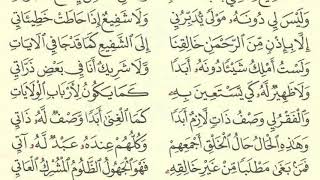 وَلَيْسَ لِي دُونَهُ مَوْلًى يُدَبِّرُنِي وَلَا شَفِيعٌ إِذَا حَاطَتْ خَطِيئَاتِي
إِلَّا بِإِذْنٍ مِنَ الرَّحْمَنِ خَالِقِنَا إِلَى الشَّفِيعِ كَمَا قَدْ جَا فِي الْآيَاتِ
وَلَسْتُ أَمْلِكُ شَيْئًا دُونَهُ أَبَدًا وَلَا شَرِيكٌ أَنَا فِي بَعْضِ ذَرَّاتِ
وَلَا ظَهِيرٌ لَهُ كَيْ يَسْتَعِينَ بِهِ كَمَا يَكُونُ لِأَرْبَابِ الْوِلَايَاتِ
وَالْفَقْرُ لِي وَصْفُ ذَاتٍ لَازِمٌ أَبَدًا كَمَا الْغِنَى أَبَدًا وَصْفٌ لَهُ ذَاتِي
وَهَذِهِ الْحَالُ حَالُ الْخَلْقِ أَجْمَعِهِمْ وَكُلُّهُمْ عِنْدَهُ عَبْدٌ لَهُ آتِي
فَمَنْ بَغَى مَطْلَبًا مِنْ غَيْرِ خَالِقِهِ فَهُوَ الْجَهُولُ الظَّلُومُ الْمُشْرِكُ الْعَاتِي